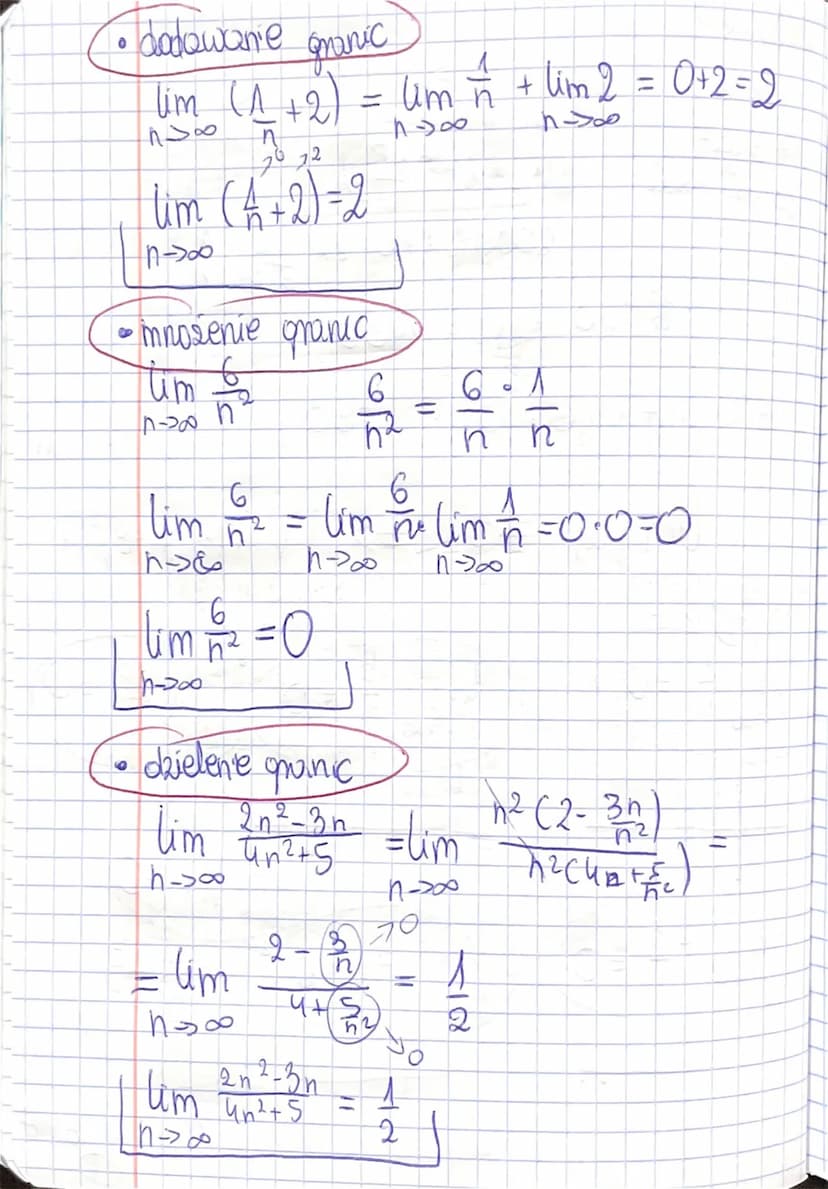 • dodawanie granic
lim n→∞ (1/n + 2) = lim n→∞ 1/n + lim n→∞ 2 = 0+2=2
→0 →2
lim n→∞ (1/n + 2) = 2
• mnożenie granic
lim n→∞ 6/n² 6/n² = 6/n · 1/n
lim n→∞ 6/n² = lim n→∞ 6/n · lim n→∞ 1/n = 0·0=0
lim n→∞ 6/n² = 0
• dzielenie granic
lim n→∞ (2n²-3n)/(4n²+5) = lim n→∞ n²(2 - 3n/n²)/n²(4 + 5/n²) =
= lim n→∞ (2 - 3/n)/(4 + 5/n²) = 1/2
→0
→0
lim n→∞ (2n²-3n)/(4n²+5) = 1/2